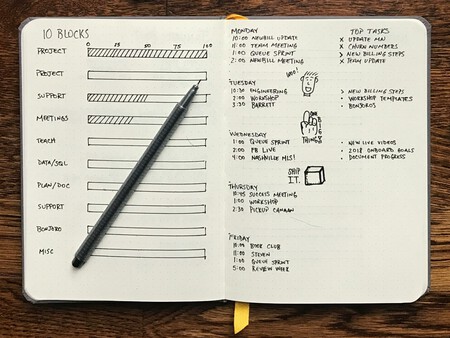 10 BLOCKS
0 25 50 75 100
PROJECT
PROJECT
SUPPORT
MEETINGS
TEACH
DATA/SQL
PLAN/DOC
SUPPORT
BONJORO
MISC
MONDAY
10:00 NEWBILL UPDATE
11:00 TEAM MEETING
1:00 QUEUE SPRINT
2:00 NEWBILL MEETING
TOP TASKS
X UPDATE MAI
X CHURN NUMBERS
> NEW BILLING STEPS
X TEAM UPDATE
TUESDAY
10:30 ENGINEERING
2:00 WORKSHOP
3:30 BARRETT
> NEW BILLING STEPS
• WORKSHOP TEMPLATES
• BONJOROS
WEDNESDAY
1:00 QUEUE SPRINT
2:00 PB LIVE
4:00 NASHVILLE MLS!
THING
• NEW LIVE VIDEOS
• 2018 ONBOARD GOALS
• DOCUMENT PROGRESS
SHIP
IT.
THURSDAY
10:45 SUCCESS MEETING
1:00 WORKSHOP
2:30 PICKUP CANAAN
FRIDAY
10:00 BOOK CLUB
11:00 STEVEN
1:00 QUEUE SPRINT
5:00 REVIEW WEEK